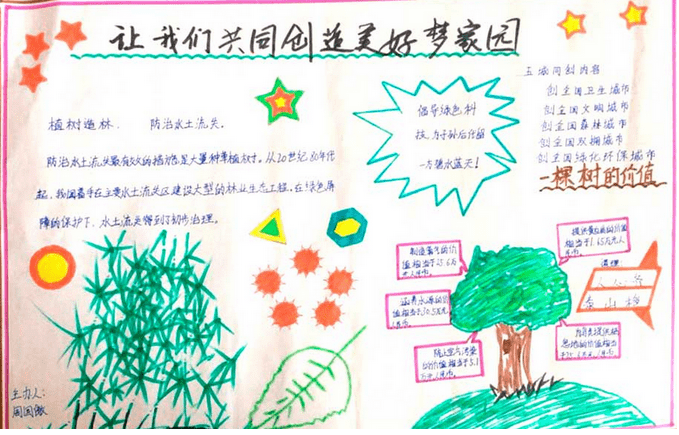 让我们共同创造美好梦家园
植树造林, 防治水土流失。
防治水土流失最有效的措施是大量种草植树。从20世纪80年代
起,我国着手在主要水土流失区建设大型的林业生态工程,在绿色屏
障的保护下,水土流失得到了初步治理。
倡导绿色科
技,为子孙后代留
一方碧水蓝天!
五城同创内容
创全国卫生城市
创全国文明城市
创全国森林城市
创全国双拥城市
创全国绿化环保城市
一棵树的价值
制造氧气的价
值相当于
涵养水源的价
值相当于
防止空气污染
的价值相当于3.1
提供蛋白质的价值
相当于
道理
人人爷
泰山移
主办人:
周国